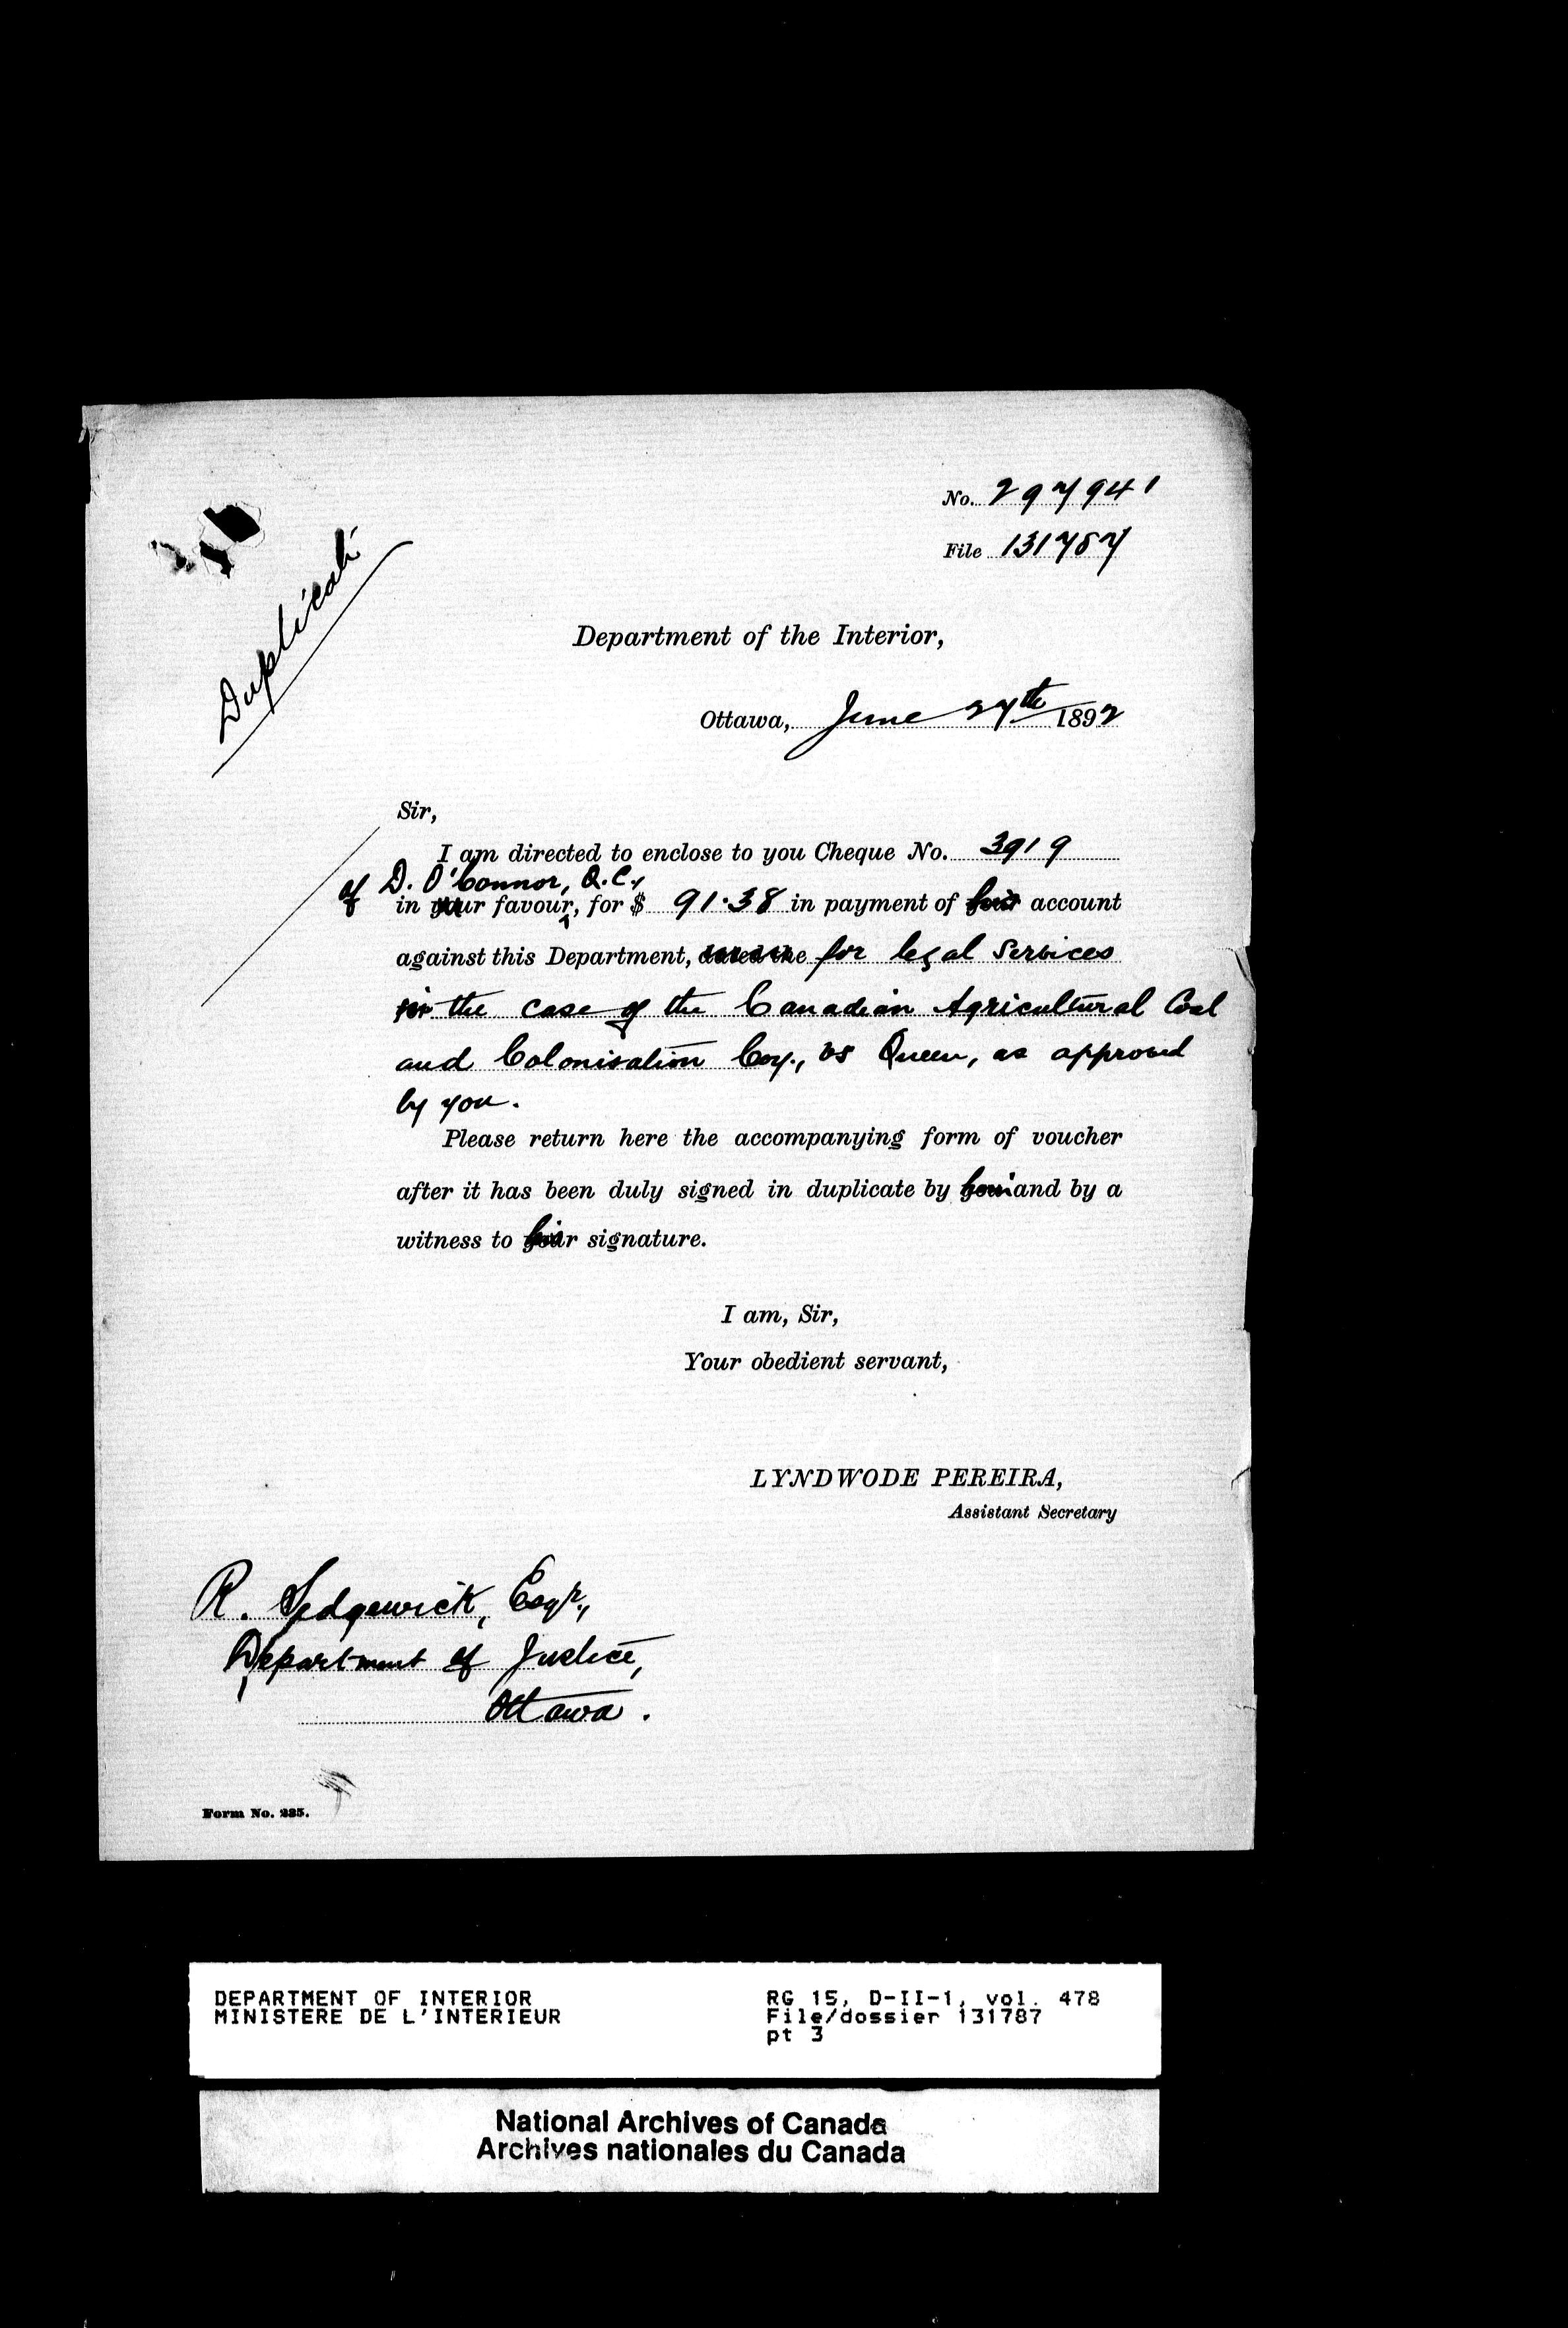 No. 297941
File 131787
Duplicate
Department of the Interior,
Ottawa, June 27th 1892
Sir,
I am directed to enclose to you Cheque No. 3919
of D. O'Connor, Q.C.,
in favour, for $ 91.38 in payment of his account
against this Department, for legal services
in the case of the Canadian Agricultural Coal
and Colonisation Coy., vs Queen, as approved
by you.
Please return here the accompanying form of voucher
after it has been duly signed in duplicate by him and by a
witness to his signature.
I am, Sir,
Your obedient servant,
LYNDWODE PEREIRA,
Assistant Secretary
R. Sedgewick, Esqr.,
Department of Justice,
Ottawa.
Form No. 235.
DEPARTMENT OF INTERIOR
MINISTERE DE L'INTERIEUR
RG 15, D-II-1, vol. 478
File/dossier 131787
pt 3
National Archives of Canada
Archives nationales du Canada